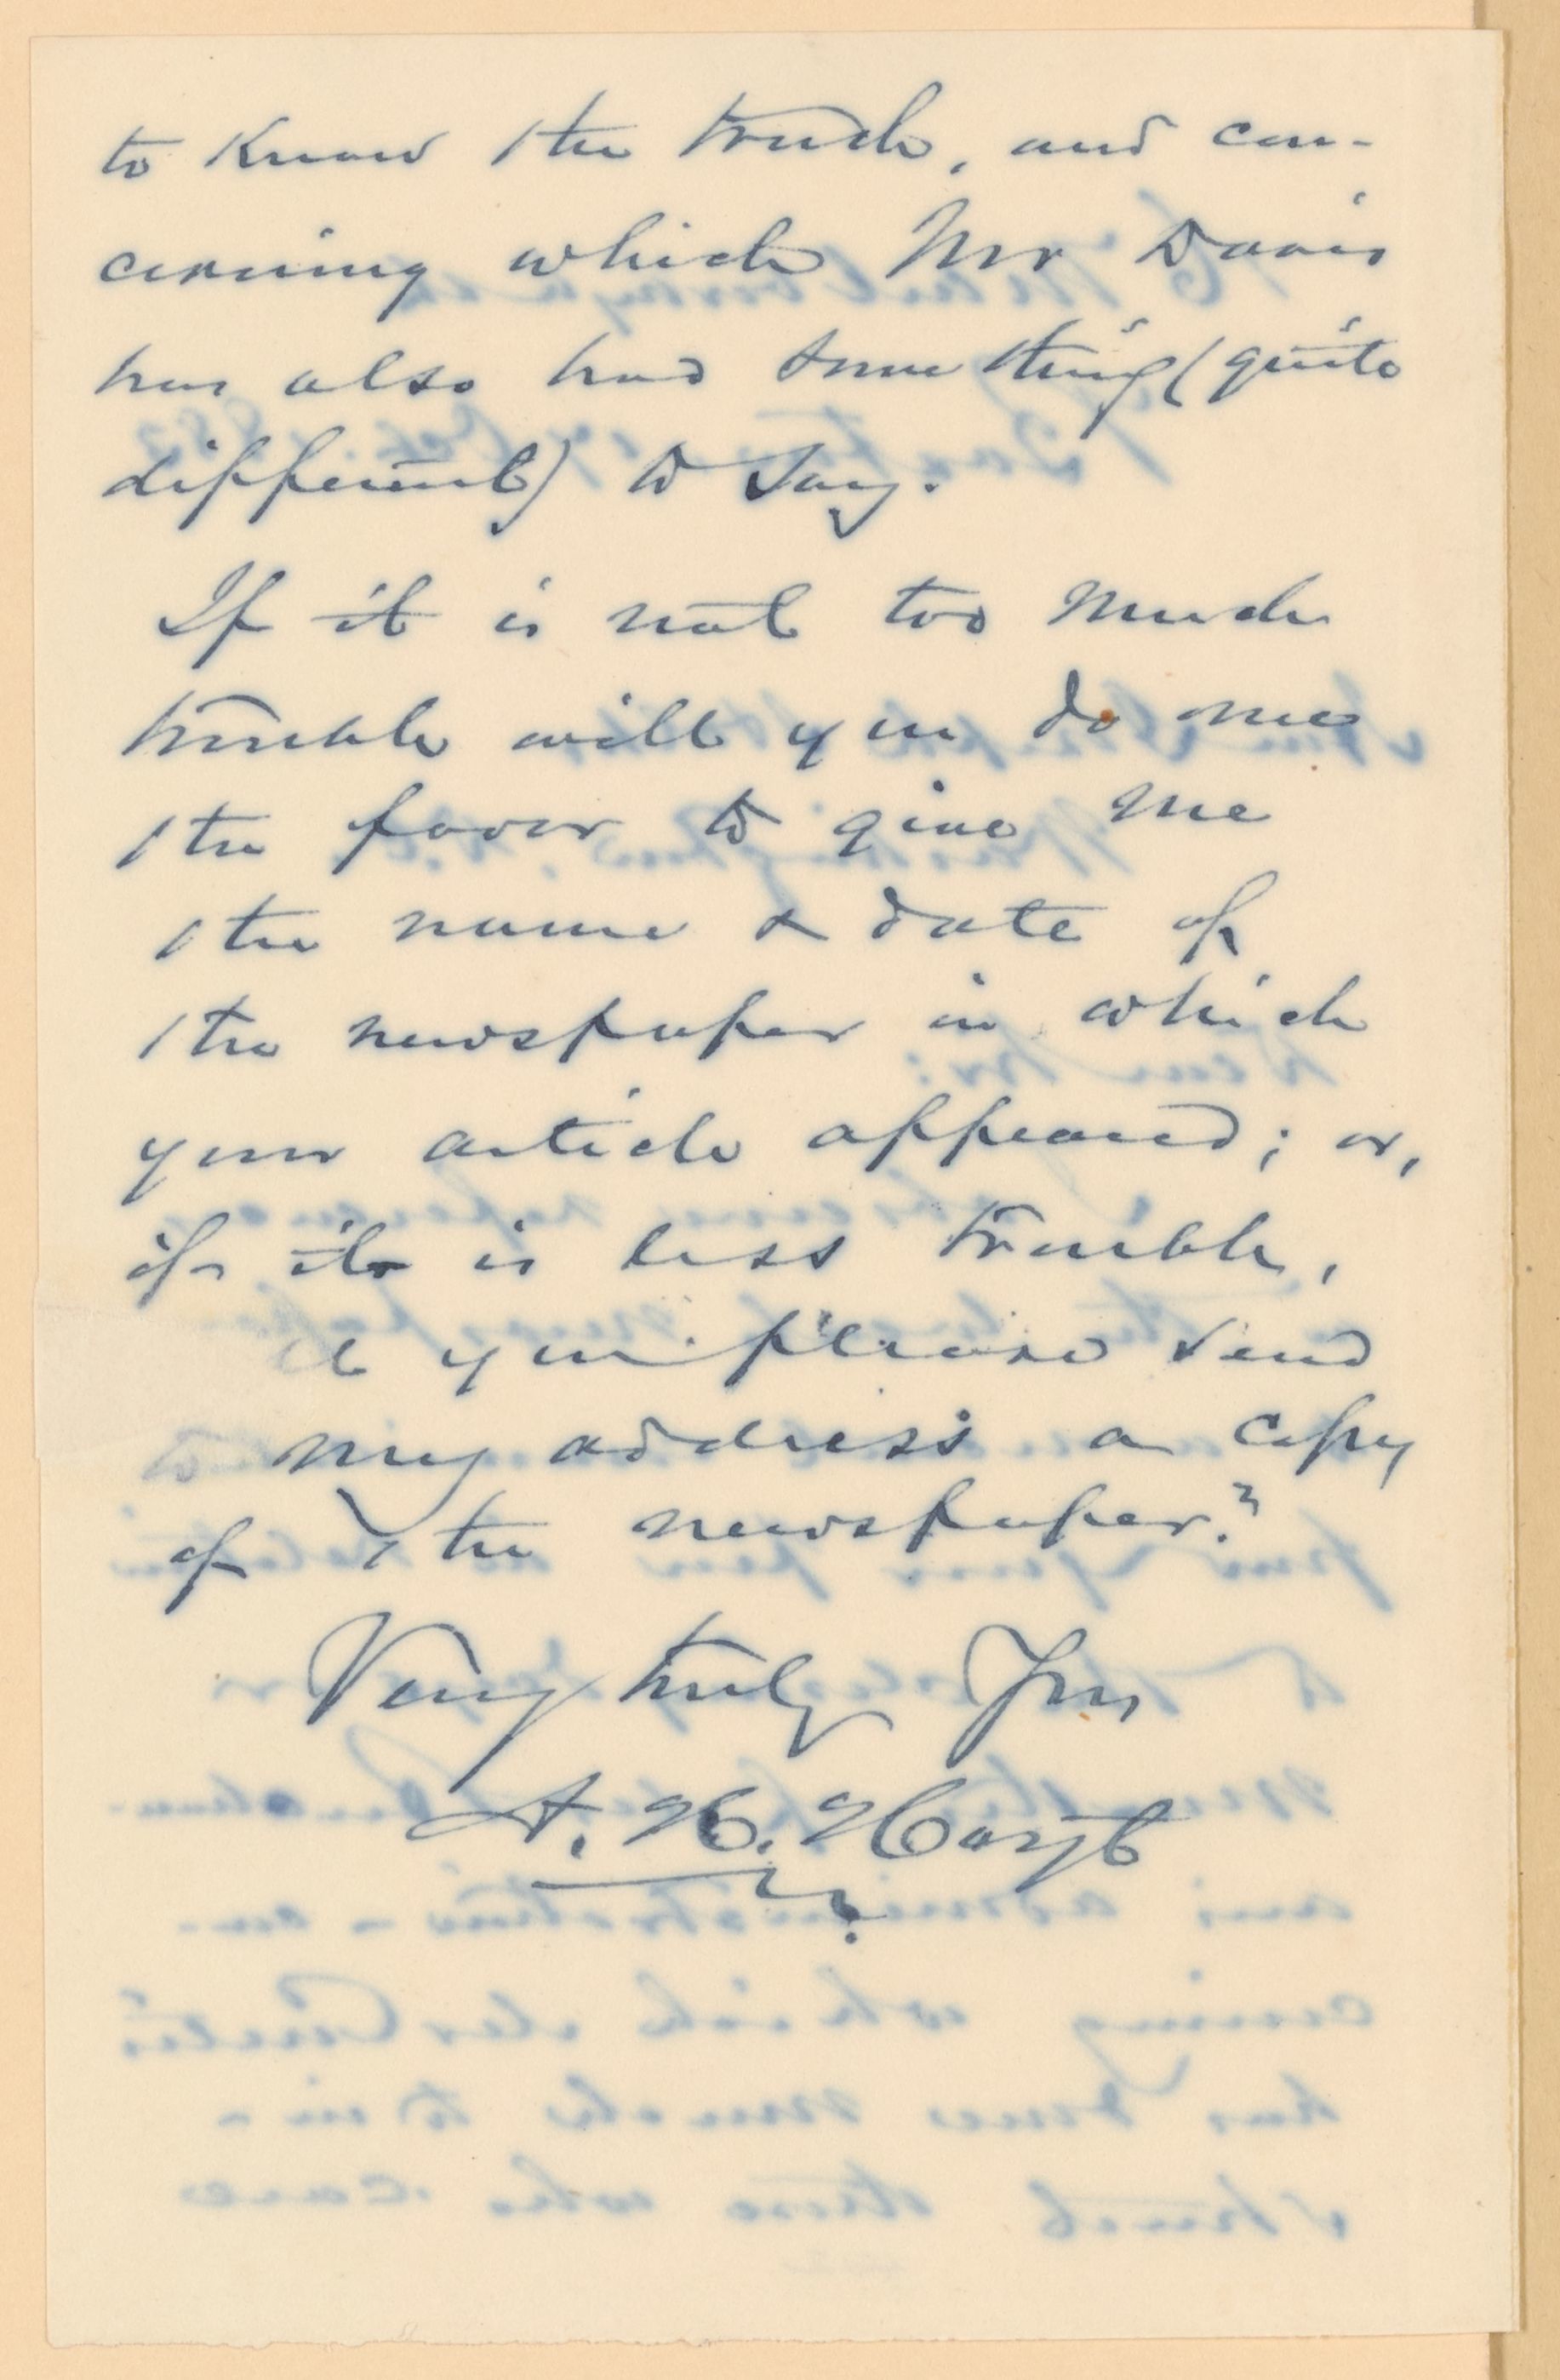 to Know the truth, and con-
cerning which Mr Davis
has also had some thing (quite
different) to say.
If it is not too much
trouble will you do me
the favor to give me
the name & date of
the newspaper in which
your article appeared; or,
if it is less trouble,
you please send
my address a copy
of the newspaper?
Very truly Yrs
A. H. Hoyt